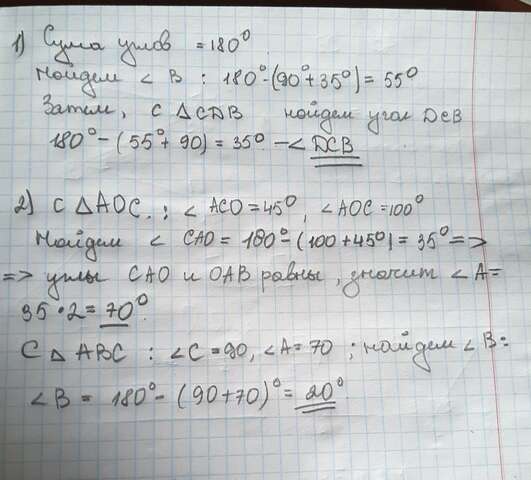 1) Сума углов = 180°
Найдем ∠ B : 180°-(90°+35°) = 55°
Затем, с △CDB найдем угол DCB
180° - (55°+90) = 35° - ∠ DCB
2) С △AOC. : ∠ ACO = 45°, ∠ AOC = 100°
Найдем ∠ CAO = 180° - (100+45°) = 35° =>
=> углы CAO и OAB равны, значит ∠ A =
35 · 2 = 70°.
С △ ABC : ∠C = 90, ∠A = 70 ; найдем ∠ B:
∠ B = 180° - (90+70)° = 20°